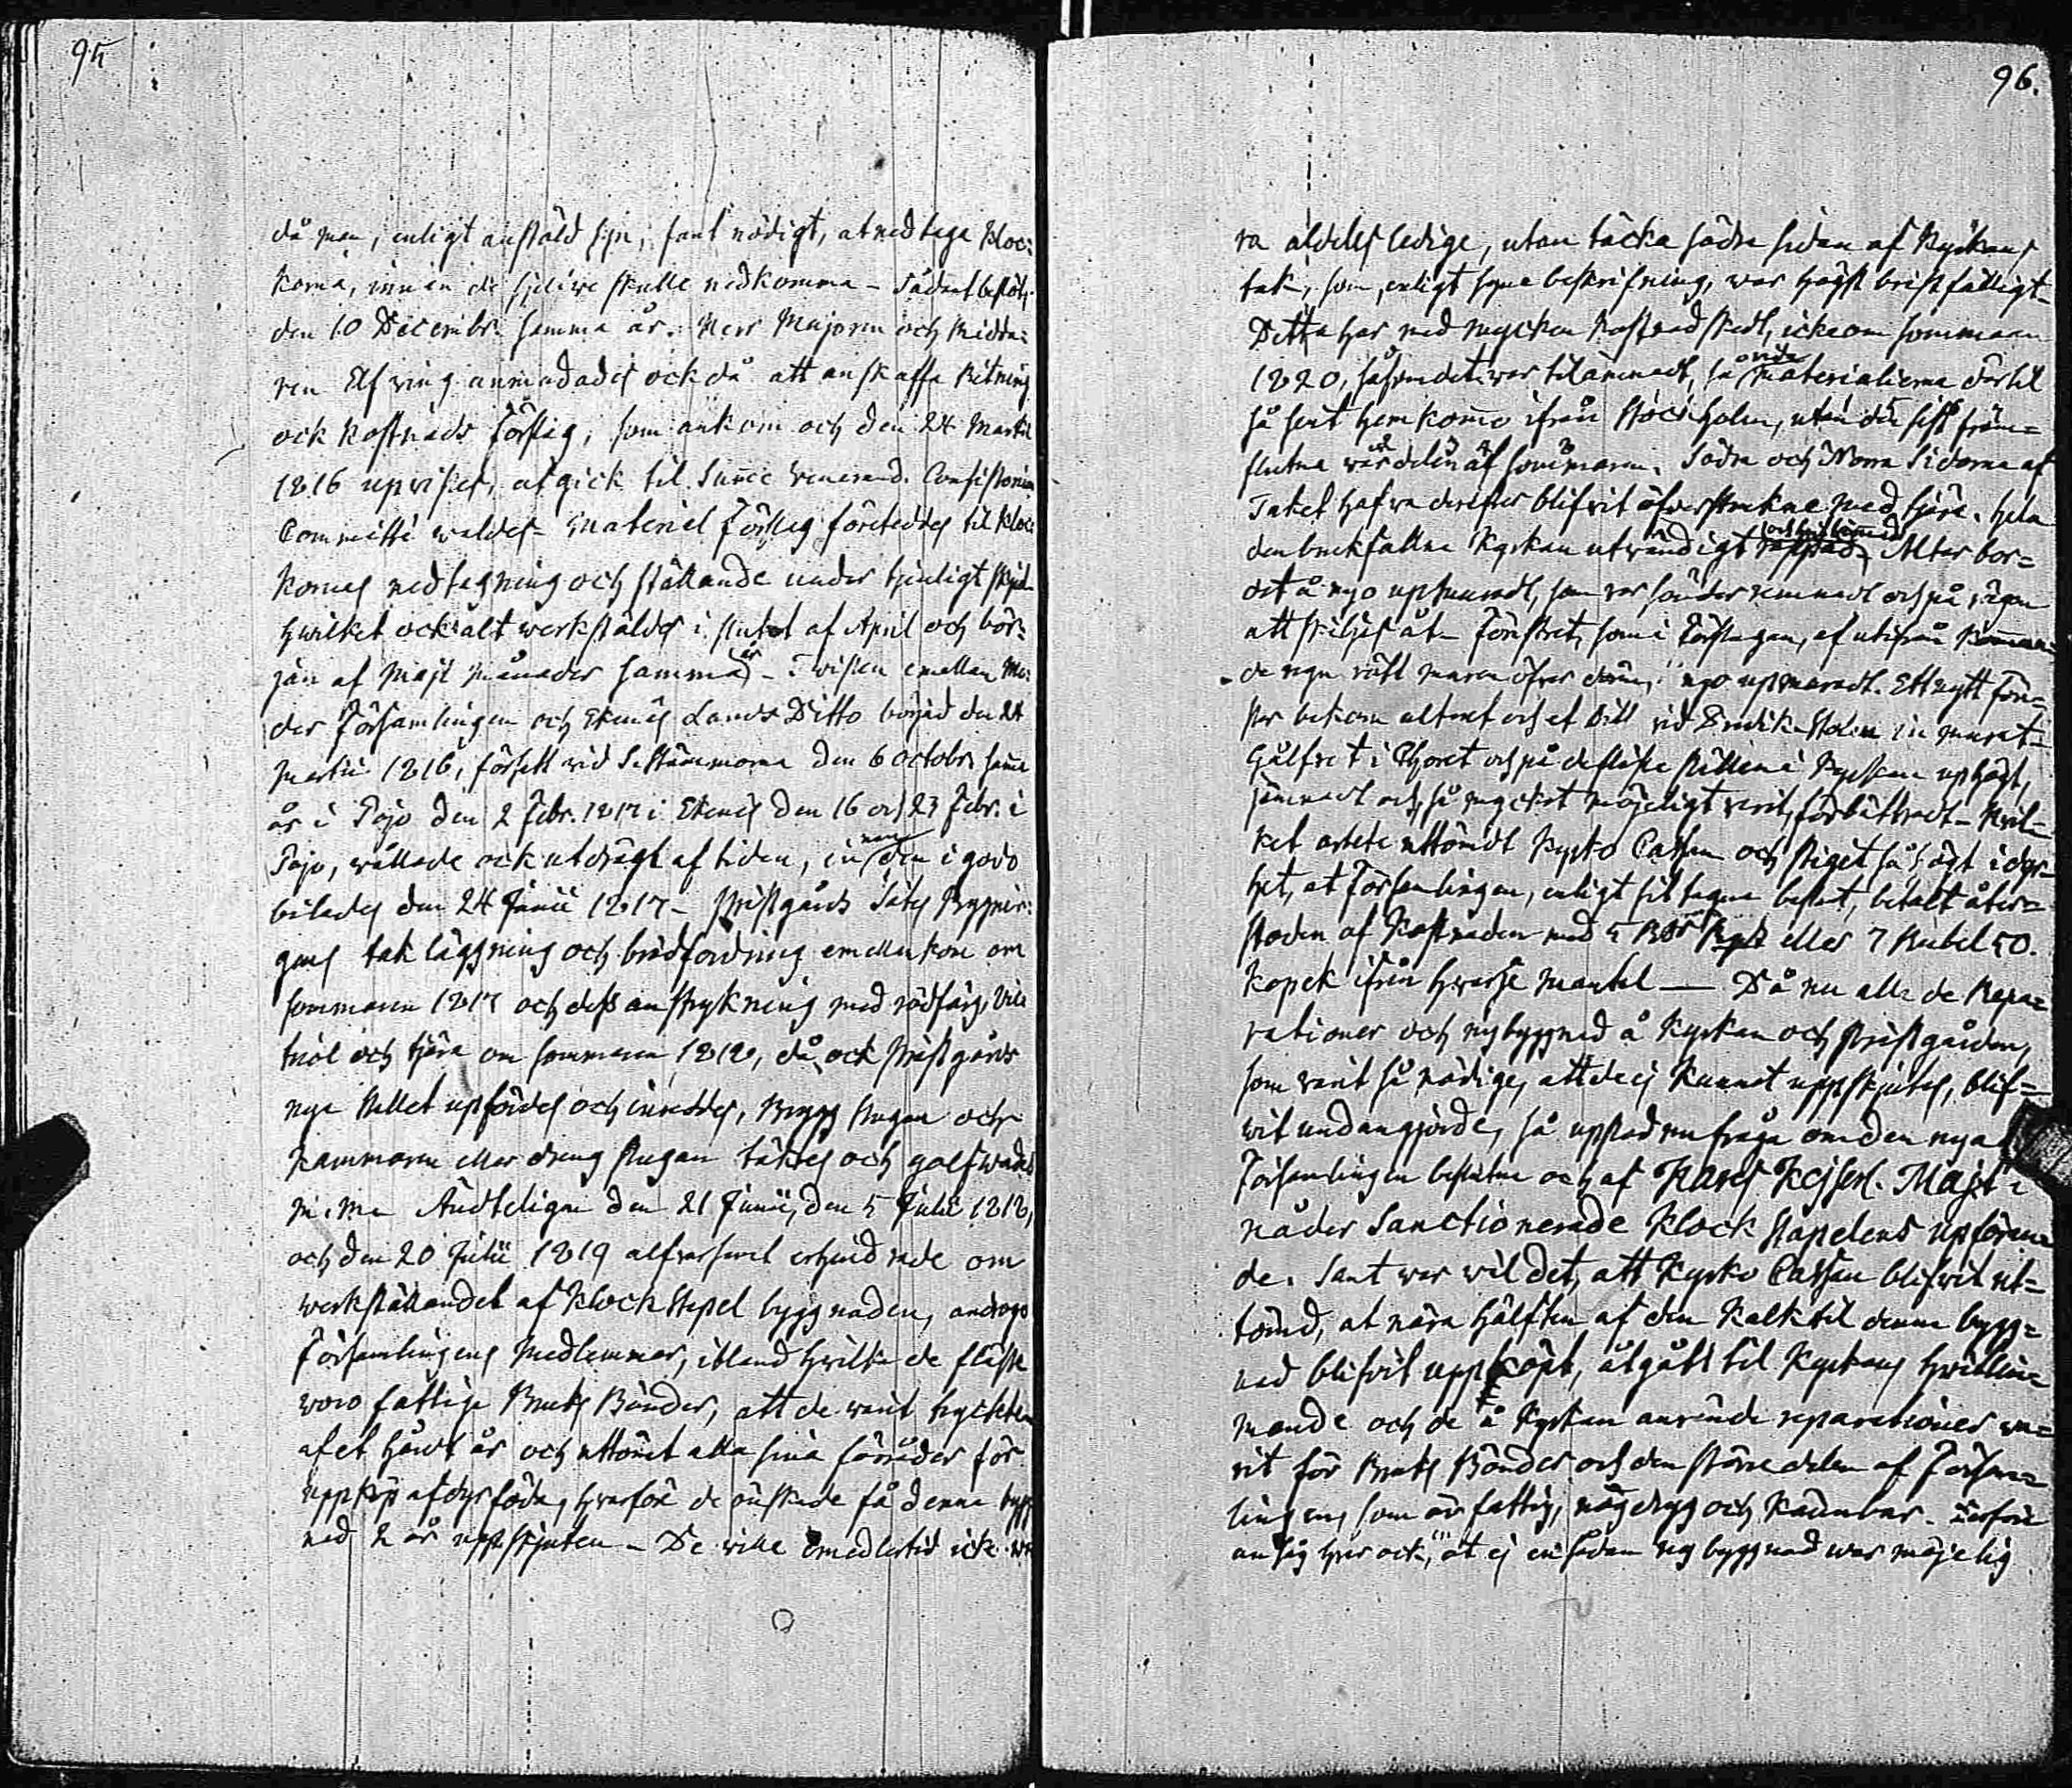 95
då man, enligt anstäld syn, fant nödigt, at nedtaga kloc-
korna, innan de sjelfwe skulle nedkomma - Sådant beslöts
den 10 Decembr. samma år. Herr Majoren och Ridda-
ren Elfwing anmodades ock då att anskaffa Ritning
ock kostnads Förslag, som ankom och den 24 Martii
1816 upvistes, afgick til Summe Venerand. Consistorium
Committé waldes - Materiel Förslag företeddes til kloc-
kornes nedtagning och ställande under tjenligt skjul
hwilket ock alt werkstäldes i slutet af April och bör-
jan af Maji månader samma år - Twisten emellan Mo-
der Församlingen och Ekenäs Lands Ditto börjad den 24
Martii 1816, försatt wid S. Stämmorna den 6 octobr. samma
år i Pojo den 2 Febr. 1817 i Ekenäs den 16 och 23 Febr. i
Pojo, wållade ock utdrägt af tiden, innan den i godo
bilades den 24 Junii 1817 - Prästgårds Sätes Bygnin-
gens tak läggning och brädfordring emellankom om
sommaren 1817 och dess anstrykning med rödfärg, Vic-
triol och tjära om sommaren 1818, då ock Prästgårds
nya stallet upfördes och inreddes, Brygg stugan och
kammaren eller dreng stugan täktes och golfwades
Min Ändteligen den 21 Junii, den 5 Julii 1818,
och den 20 Julii 1819 alfwarsamt erhindrade om
werkställandet af Klock Stapel byggnaden, androgo
Församlingens Medlemmar, ibland hwilka de flästa
woro fattige Bruks Bönder, att de warit tryckta
af et hårdt år och uttömt alla sina förråder för
uppköp af dyr föda, hwarföre de önskade få denna bygg
nad 2 år uppskjuten - De wille emedlertid icke wa
96.
ra aldeles ledige, utan täcka södra sidan af Kyrkans
tak, som, enligt syne beskrifning, war högst bristfälligt -
Detta har med mycken kostnad skedt, icke om sommaren
1820, såsom det war tilämnadt, ty materialierna dertil
så sent hemkommo ifrån Stockholm, utan den sist fram-
flutna wårdelen af sommaren. Södra och Norra Sidorna af
Taket hafwa derefter blifvit öfverstrukne med tjära. hela
den brukfallna Kyrkan utwändigt rappad Altar bor-
det å nyo upmuradt, som war sönder remnadt och på wägen
att skiljas åt - Fönstret, som i Förstugan, af utifrån komman
de regn rätt muren öfver dörren, å nyo upmuradt. Ett nytt Fön-
ster bekom altaret och et dito wid Predik-Stolen in murat -
Gålfvet i Choret och på de fläste ställen i Kyrkan uphögt,
jämnadt och så mycket möjeligt varit, förbättradt - hvil-
ket arbete uttömdt Kyrko Cassan och stiget så högt i dyr-
het, at Församlingen, enligt sit tagne beslut, betalt åter-
stoden af kostnaden med 5 eller 7 Rubel 50.
kopek ifrån hwarje mantal — Då nu alla de Repa-
rationer och nybyggnad å Kyrkan och Prästgården,
som varit så nödige, att de ej kunnat uppskjutas, blif-
wit undangjorde, så upstod nu fråga om den nya
Församlingen beslutne och af Hans Kejserl. Majt i
nåder Sanctionerade Klock stapelens upföran
de. Sant war wäl det, att Kyrko Cassan blifvit ut-
tömd, at nära Hälften af den Kalk til denna bygg-
nad blifvit uppköpt, åtgått til Kyrkans hwitlim-
mande och de å Kyrkan använde reparationer wa-
rit för Bruks Bönder och den större delen af Försam-
lingen, som är fattig, någ dryg och kännbar. Derföre
an såg hwar ock, at ej en sådan ny byggnad war möjelig